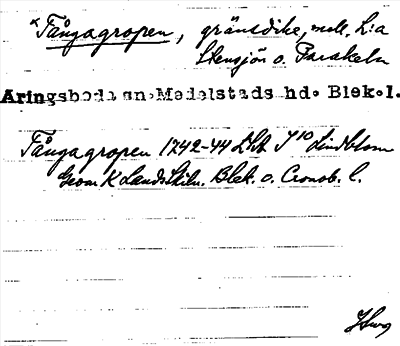 *Fångagropen, gränsdike, mell. L:a
Stensjön o. Parakeln
Aringsbodasgn.Medelstads hd. Blek.l.
Fångagropen 1742-44 LSk J10 Lindblom
Geom K Landsbibl. Blek. o. Cronob. l.